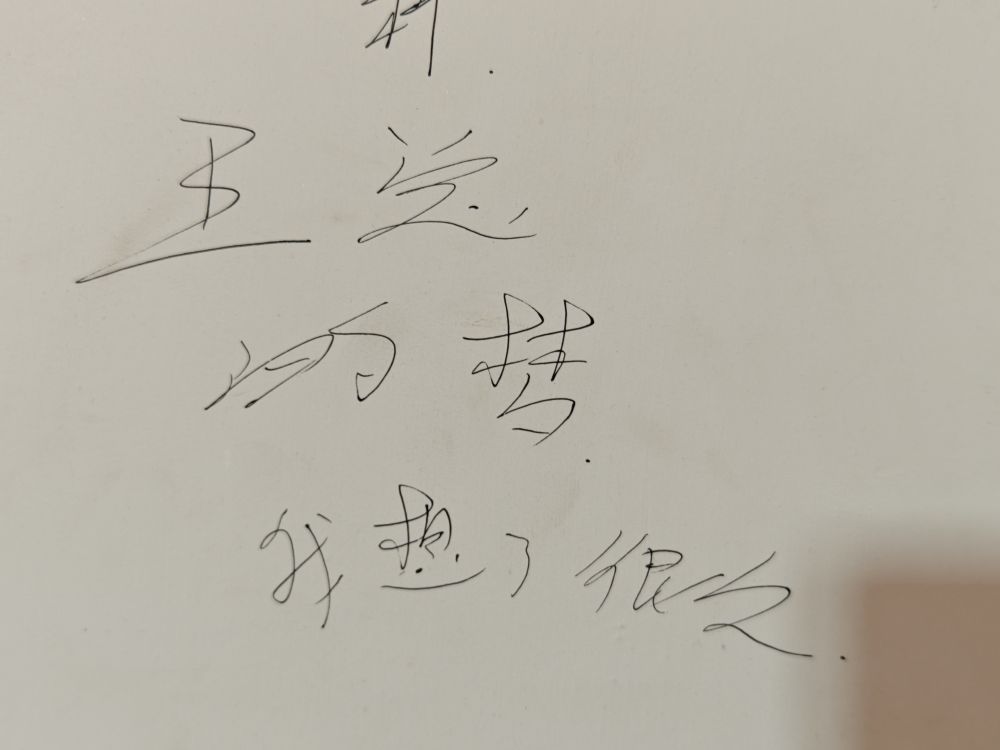 王总
的梦.
我想了很久.